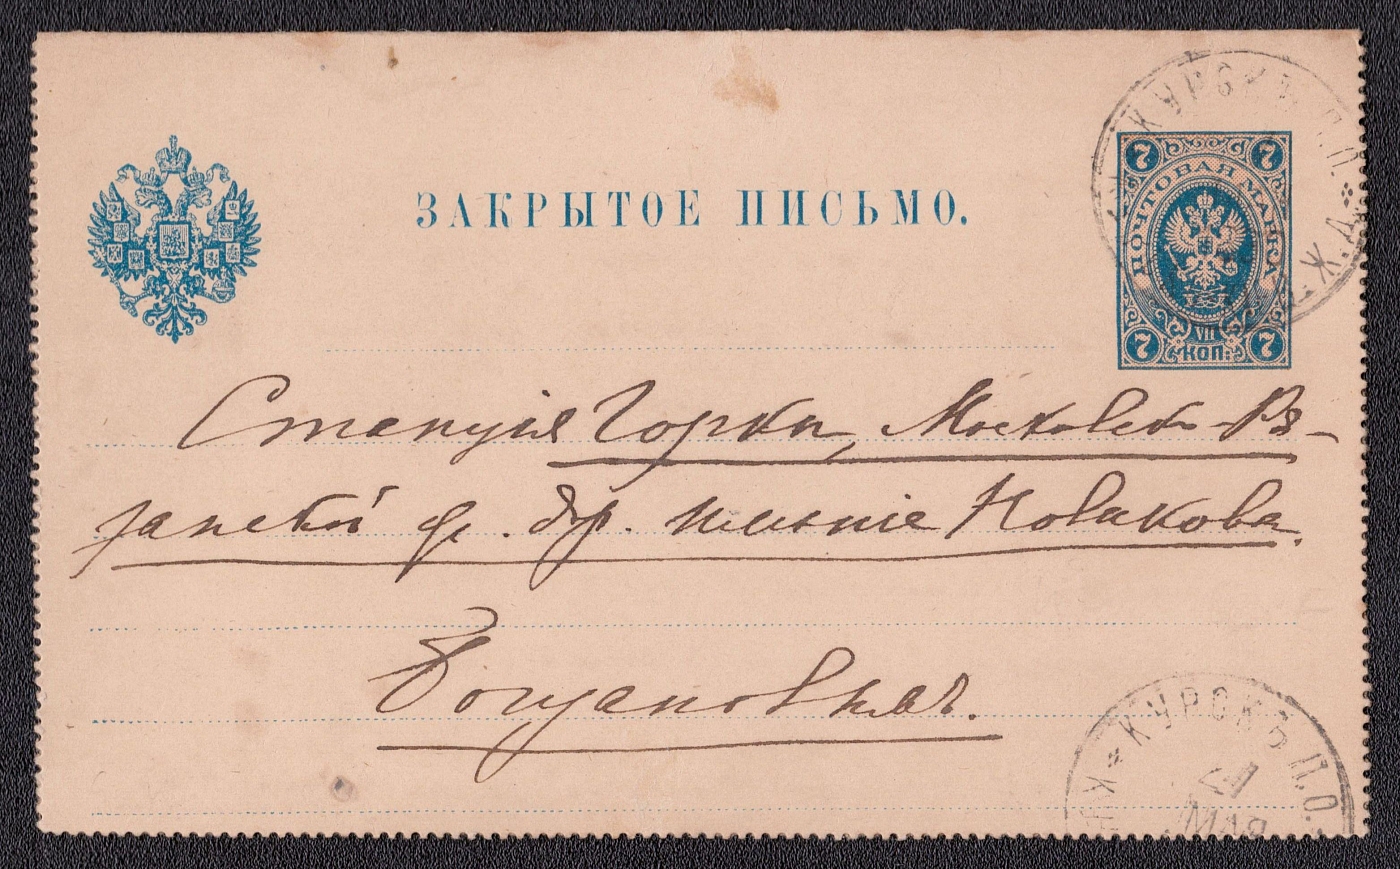 ЗАКРЫТОЕ ПИСЬМО.
7 7
ПОЧТОВАЯ МАРКА
7 VII КОП. 7
КУРСКЪ П.О.
Ж.Д.
Станція Горки, Московско-Ря-
занской ж. дор. имѣніе Новикова
Богдановныѣ.
КУРСКЪ П.О.
21
МАЯ